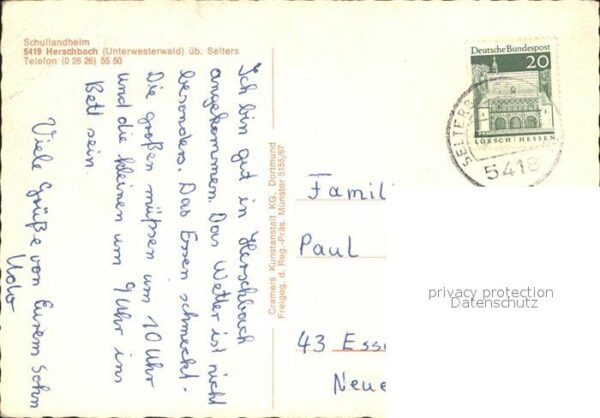 Schullandheim
5419 Herschbach (Unterwesterwald) üb. Selters
Telefon (0 26 26) 55 50
Ich bin gut in Herschbach
angekommen. Das Wetter ist nicht
besonders. Das Essen schmeckt.
Die großen müssen um 10 Uhr
und die kleinen um 9 Uhr ins
Bett sein
Viele Grüße von Eurem Sohn
Cramers Kunstanstalt KG, Dortmund
Freigeg. d. Reg.-Präs. Münster 5155/67
Deutsche Bundespost
20
LORSCH/HESSEN
SELTERS
5418
Famil
Paul
43 Esse
Neue
privacy protection
Datenschutz